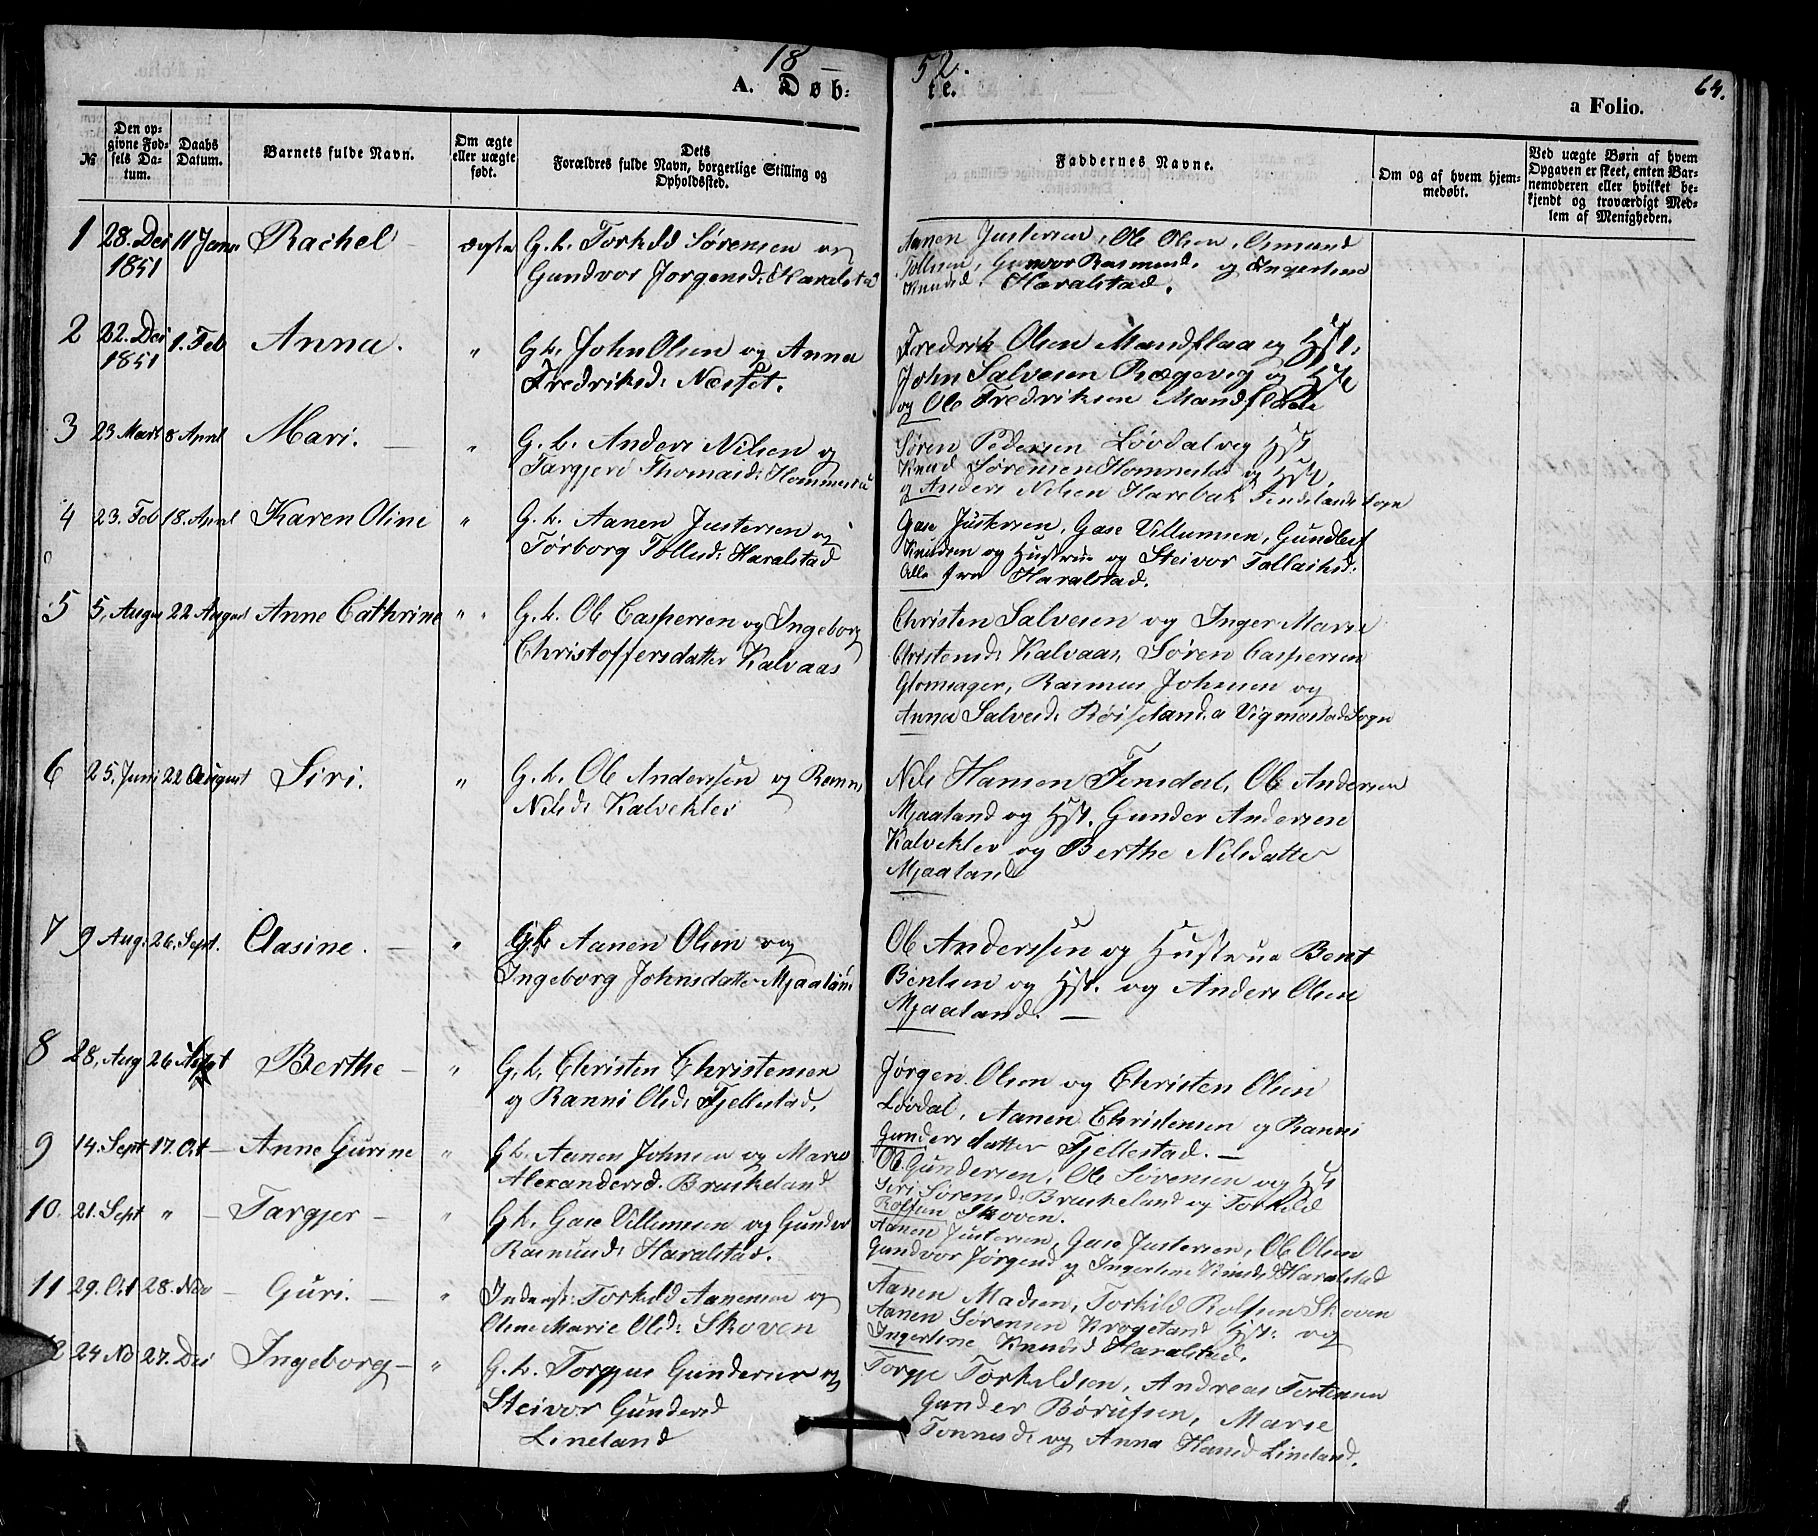 18 52.
64.
A. Døb: te.
a Folio.
№
Den opgivne Fødsels Datum.
Daabs Datum.
Barnets fulde Navn.
Om ægte eller uægte født.
Dets Forældres fulde Navn, borgerlige Stilling og Opholdssted.
Faddernes Navne.
Om og af hvem hjemmedøbt.
Ved uægte Børn af hvem Opgaven er skeet, enten Barnemoderen eller hvilket bekjendt og troværdigt Medlem af Menigheden.
1 28. Dec 1851 11 Janu Rachel – ægte
G. b. Torkild Sørensen og
Gundvor Jorgensd: Haralstad
Aanen Justersen, Ole Olsen, Osmund
Tollisen, Gunvor Rasmusd. og Ingerline
Knudsd. Haralstad.
2 22. Dec 1851 1. Feb Anna. "
G. b. John Olsen og Anna
Fredriksd: Næsset.
Fredrik Olsen Mandflaa og Hst:
John Salvesen Rægevig og Hst
og Ole Fredriksen Mandflaa
3 23 Mart 8 April Mari. – "
G. b. Anders Nilsen og
Targjerd Thomasd: Hommestad
Søren Pedersen Løvdal og Hst
Knud Sørensen Homnestad og Hst.
og Anders Nilsen Harebak Findslands Sogn
4 23. Feb 18. April Karen Oline "
G. b. Aanen Justersen og
Torborg Tollisd: Haralstad
Gase Justersen, Gase Villumsen, Gundleif
Knudsen og Hustrue og Steivor Tallaksd:
Alle fra Haralstad.
5 5, August 22 August Anne Cathrine " "
G. b. Ole Caspersen og Ingeborg
Christoffersdatter Kalvaas
Christen Salvesen og Inger Marie
Christensd: Kalvaas, Søren Caspersen
Glomsager, Rasmus Johnsen og
Anna Salvesd: Røiseland a Vigmostad Sogn
6 25, Juni 22 August Siri. "
G. b. Ole Anderssen og Ranni
Nilsd: Kalveklev
Nils Hansen Finsdal, Ole Andersen
Mjaaland og Hst. Gunder Andersen
Kalveklev og Berthe Nilsdatter
Mjaaland
7 9 Aug: 26. Sept. Clasine. – "
G. b. Aanen Olsen og
Ingeborg Johnsdatter Mjaaland
Ole Anderssen og Hustrue Bent
Bentsen og Hst. og Anders Olsen
Mjaaland. –
8 28, Aug 26 Sept Berthe – "
G. b. Christen Christensen
og Ranni Olsd: Fjellestad.
Jørgen Olsen og Christen Olsen
Løvdal, Aanen Christensen og Ranni
Gundersdatter Fjellestad. –
9 14. Sept 17. Oct – Anne Gurine "
G. b. Aanen Johnsen og Maria
Alexandersd. Bruskeland
Ole Gundersen, Ole Sørensen og Hst
Siri Sørensd: Bruskeland og Torkild
Rolfsen Skoven.
10. 21. Sept " – Targjer – "
G. b. Gase Villumsen og Gunder
Rasmusd: Haralstad.
Aanen Justersen, Gase Justersen, Ole Olsen
Gundvor Jørgensd og Ingerline Knudsd Haralstad
11 29. Oct 28. Nov – Guri. – "
Inderst: Torkild Aanensen og
Oline Marie Olsd: Skoven
Aanen Madsen, Torkild Rolfsen Skoven
Aanen Sørensen Krogeland Hst: og
Ingerline Knudsd Haralstad.
12 24 No 27. Dec Ingeborg – "
G. b. Torgjus Gundersen og
Steivor Gundersd
Lineland
Torgje Torkildsen, Andreas Tortensen
Gunder Børufsen, Marie
Tønnesd: og Anna Hansd Lineland.